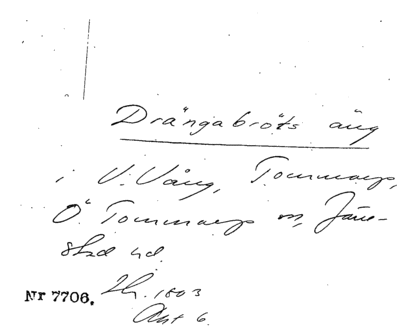 Drängabröts äng
i V. Vång, Tommarps,
Ö. Tommarps sn, Järre-
stad hd.
Nr 7706. Lh. 1803
Akt 6.